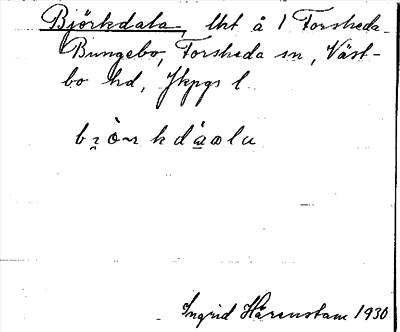 Björkdala, lht å 1 Forsheda-
Bungebo, Forsheda sn, Väst-
bo hd, Jkpgs l.
Ingrid Härenstam 1930